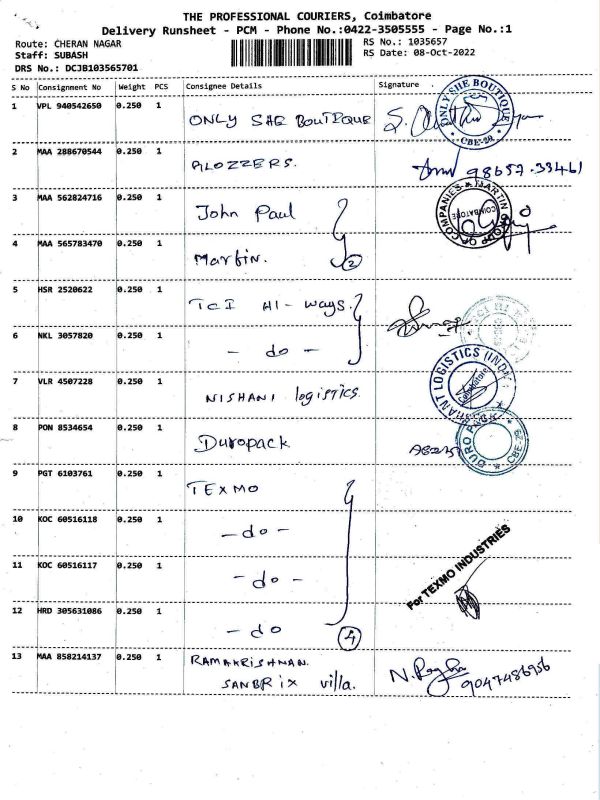 THE PROFESSIONAL COURIERS, Coimbatore
Delivery Runsheet - PCM - Phone No.:0422-3505555 - Page No.:1
Route: CHERAN NAGAR
RS No.: 1035657
Staff: SUBASH
RS Date: 08-Oct-2022
DRS No.: DCJB103565701
S No Consignment No Weight PCS Consignee Details Signature
1 VPL 940542650 0.250 1 ONLY SHE BOUTIQUE
ONLY SHE BOUTIQUE
* CBE-29 *
2 MAA 288670544 0.250 1 98657-33461
3 MAA 562824716 0.250 1 John Paul
MARTIN GROUP OF COMPANIES
COIMBATORE
4 MAA 565783470 0.250 1 Martin. 2
5 HSR 2520622 0.250 1 TCI HI-ways.
6 NKL 3057820 0.250 1 - do -
7 VLR 4507228 0.250 1 NISHANI logistics
LOGISTICS
Coimbatore
8 PON 8534654 0.250 1 Duropack
DURO PACK
CBE-29
9 PGT 6103761 0.250 1 TEXMO
10 KOC 60516118 0.250 1 - do -
11 KOC 60516117 0.250 1 - do -
For TEXMO INDUSTRIES
12 HRD 305631086 0.250 1 - do - 4
13 MAA 858214137 0.250 1 RAMAKRISHNAN.
SANBRIX villa.
9047486956